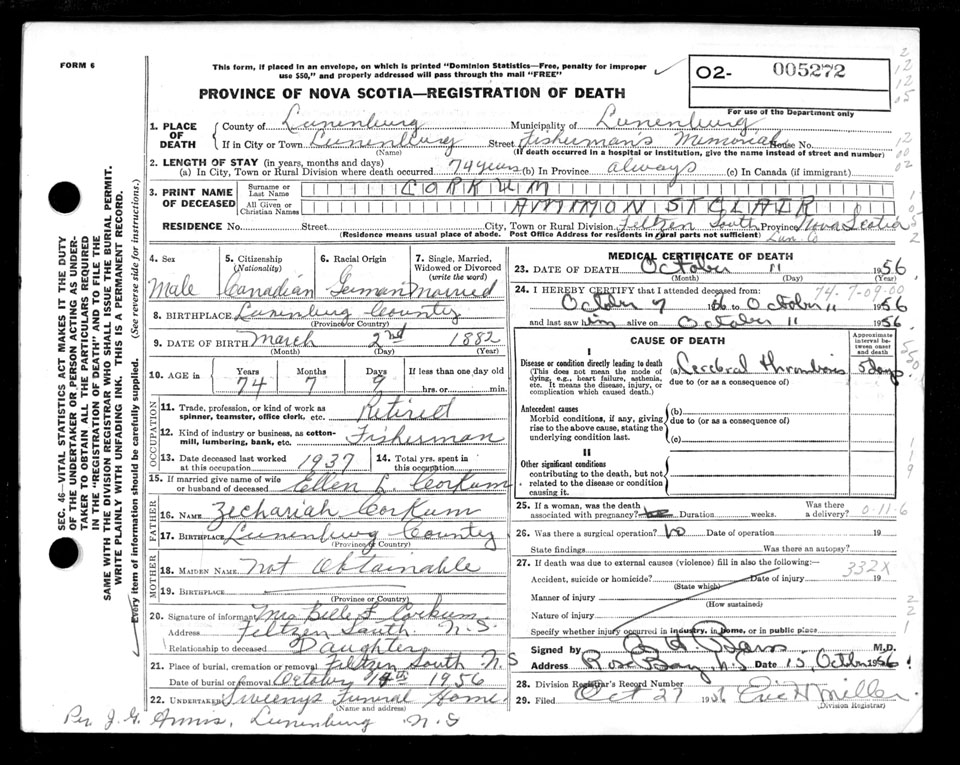 FORM 6
This form, if placed in an envelope, on which is printed "Dominion Statistics—Free, penalty for improper
use $50," and properly addressed will pass through the mail "FREE"
O2- 005272
PROVINCE OF NOVA SCOTIA—REGISTRATION OF DEATH
For use of the Department only
1. PLACE OF DEATH { County of Lunenburg Municipality of Lunenburg
If in City or Town Lunenburg Street Fisherman's Memorial House No.
(Name) (If death occurred in a hospital or institution, give the name instead of street and number)
2. LENGTH OF STAY (in years, months and days)
(a) In City, Town or Rural Division where death occurred 74 years (b) In Province always (c) In Canada (if immigrant)
3. PRINT NAME OF DECEASED { Surname or Last Name CORKUM
All Given or Christian Names AMMON STCLAIR
RESIDENCE No. Street City, Town or Rural Division Feltzen South Province Nova Scotia
(Residence means usual place of abode. Post Office Address for residents in rural parts not sufficient) Lun. Co
4. Sex Male
5. Citizenship (Nationality) Canadian
6. Racial Origin German
7. Single, Married, Widowed or Divorced (write the word) Married
8. BIRTHPLACE Lunenburg County
(Province or Country)
9. DATE OF BIRTH March 2nd 1882
(Month) (Day) (Year)
10. AGE in { Years 74 Months 7 Days 9 If less than one day old
hrs. or min.
OCCUPATION
11. Trade, profession, or kind of work as spinner, teamster, office clerk, etc. Retired
12. Kind of industry or business, as cotton-mill, lumbering, bank, etc. Fisherman
13. Date deceased last worked at this occupation 1937 14. Total yrs. spent in this occupation
15. If married give name of wife or husband of deceased Ellen L. Corkum
FATHER
16. NAME Zechariah Corkum
17. BIRTHPLACE Lunenburg County
(Province or Country)
MOTHER
18. MAIDEN NAME Not Obtainable
19. BIRTHPLACE
(Province or Country)
20. Signature of informant Mrs Belle F Corkum
Address Feltzen South N.S.
Relationship to deceased Daughter
21. Place of burial, cremation or removal Feltzen South N S
Date of burial or removal October 1956
22. UNDERTAKER Sweenys Funeral Home
(Name and address)
Per J. G. Lunenburg N. S
MEDICAL CERTIFICATE OF DEATH
23. DATE OF DEATH October 11 1956
(Month) (Day) (Year)
24. I HEREBY CERTIFY that I attended deceased from:
74.7-09.00
October 7 1956 to October 11 1956
and last saw him alive on October 11 1956.
CAUSE OF DEATH
Approximate interval between onset and death
I
Disease or condition directly leading to death
(This does not mean the mode of dying, e.g., heart failure, asthenia, etc. It means the disease, injury, or complication which caused death.)
(a) Cerebral thrombosis 5 days.
due to (or as a consequence of)
Antecedent causes
Morbid conditions, if any, giving rise to the above cause, stating the underlying condition last.
(b)
due to (or as a consequence of)
(c)
II
Other significant conditions
contributing to the death, but not related to the disease or condition causing it.
25. If a woman, was the death associated with pregnancy? Duration weeks. Was there a delivery? 0-11-6
26. Was there a surgical operation? No Date of operation 19
State findings Was there an autopsy?
27. If death was due to external causes (violence) fill in also the following:— 332X
Accident, suicide or homicide? Date of injury 19
(State which)
Manner of injury
(How sustained)
Nature of injury
Specify whether injury occurred in industry, in home, or in public place
Signed by M.D.
Address Rose Bay, N.S Date 15, October 1956
28. Division Registrar's Record Number
29. Filed Oct 27 1956 Eric H Miller
(Division Registrar)
SEC. 46—VITAL STATISTICS ACT MAKES IT THE DUTY
OF THE UNDERTAKER OR PERSON ACTING AS UNDER-
TAKER TO OBTAIN ALL THE PARTICULARS REQUIRED
IN THE "REGISTRATION OF DEATH" AND TO FILE THE
SAME WITH THE DIVISION REGISTRAR WHO SHALL ISSUE THE BURIAL PERMIT.
WRITE PLAINLY WITH UNFADING INK. THIS IS A PERMANENT RECORD.
Every item of information should be carefully supplied. (See reverse side for instructions.)